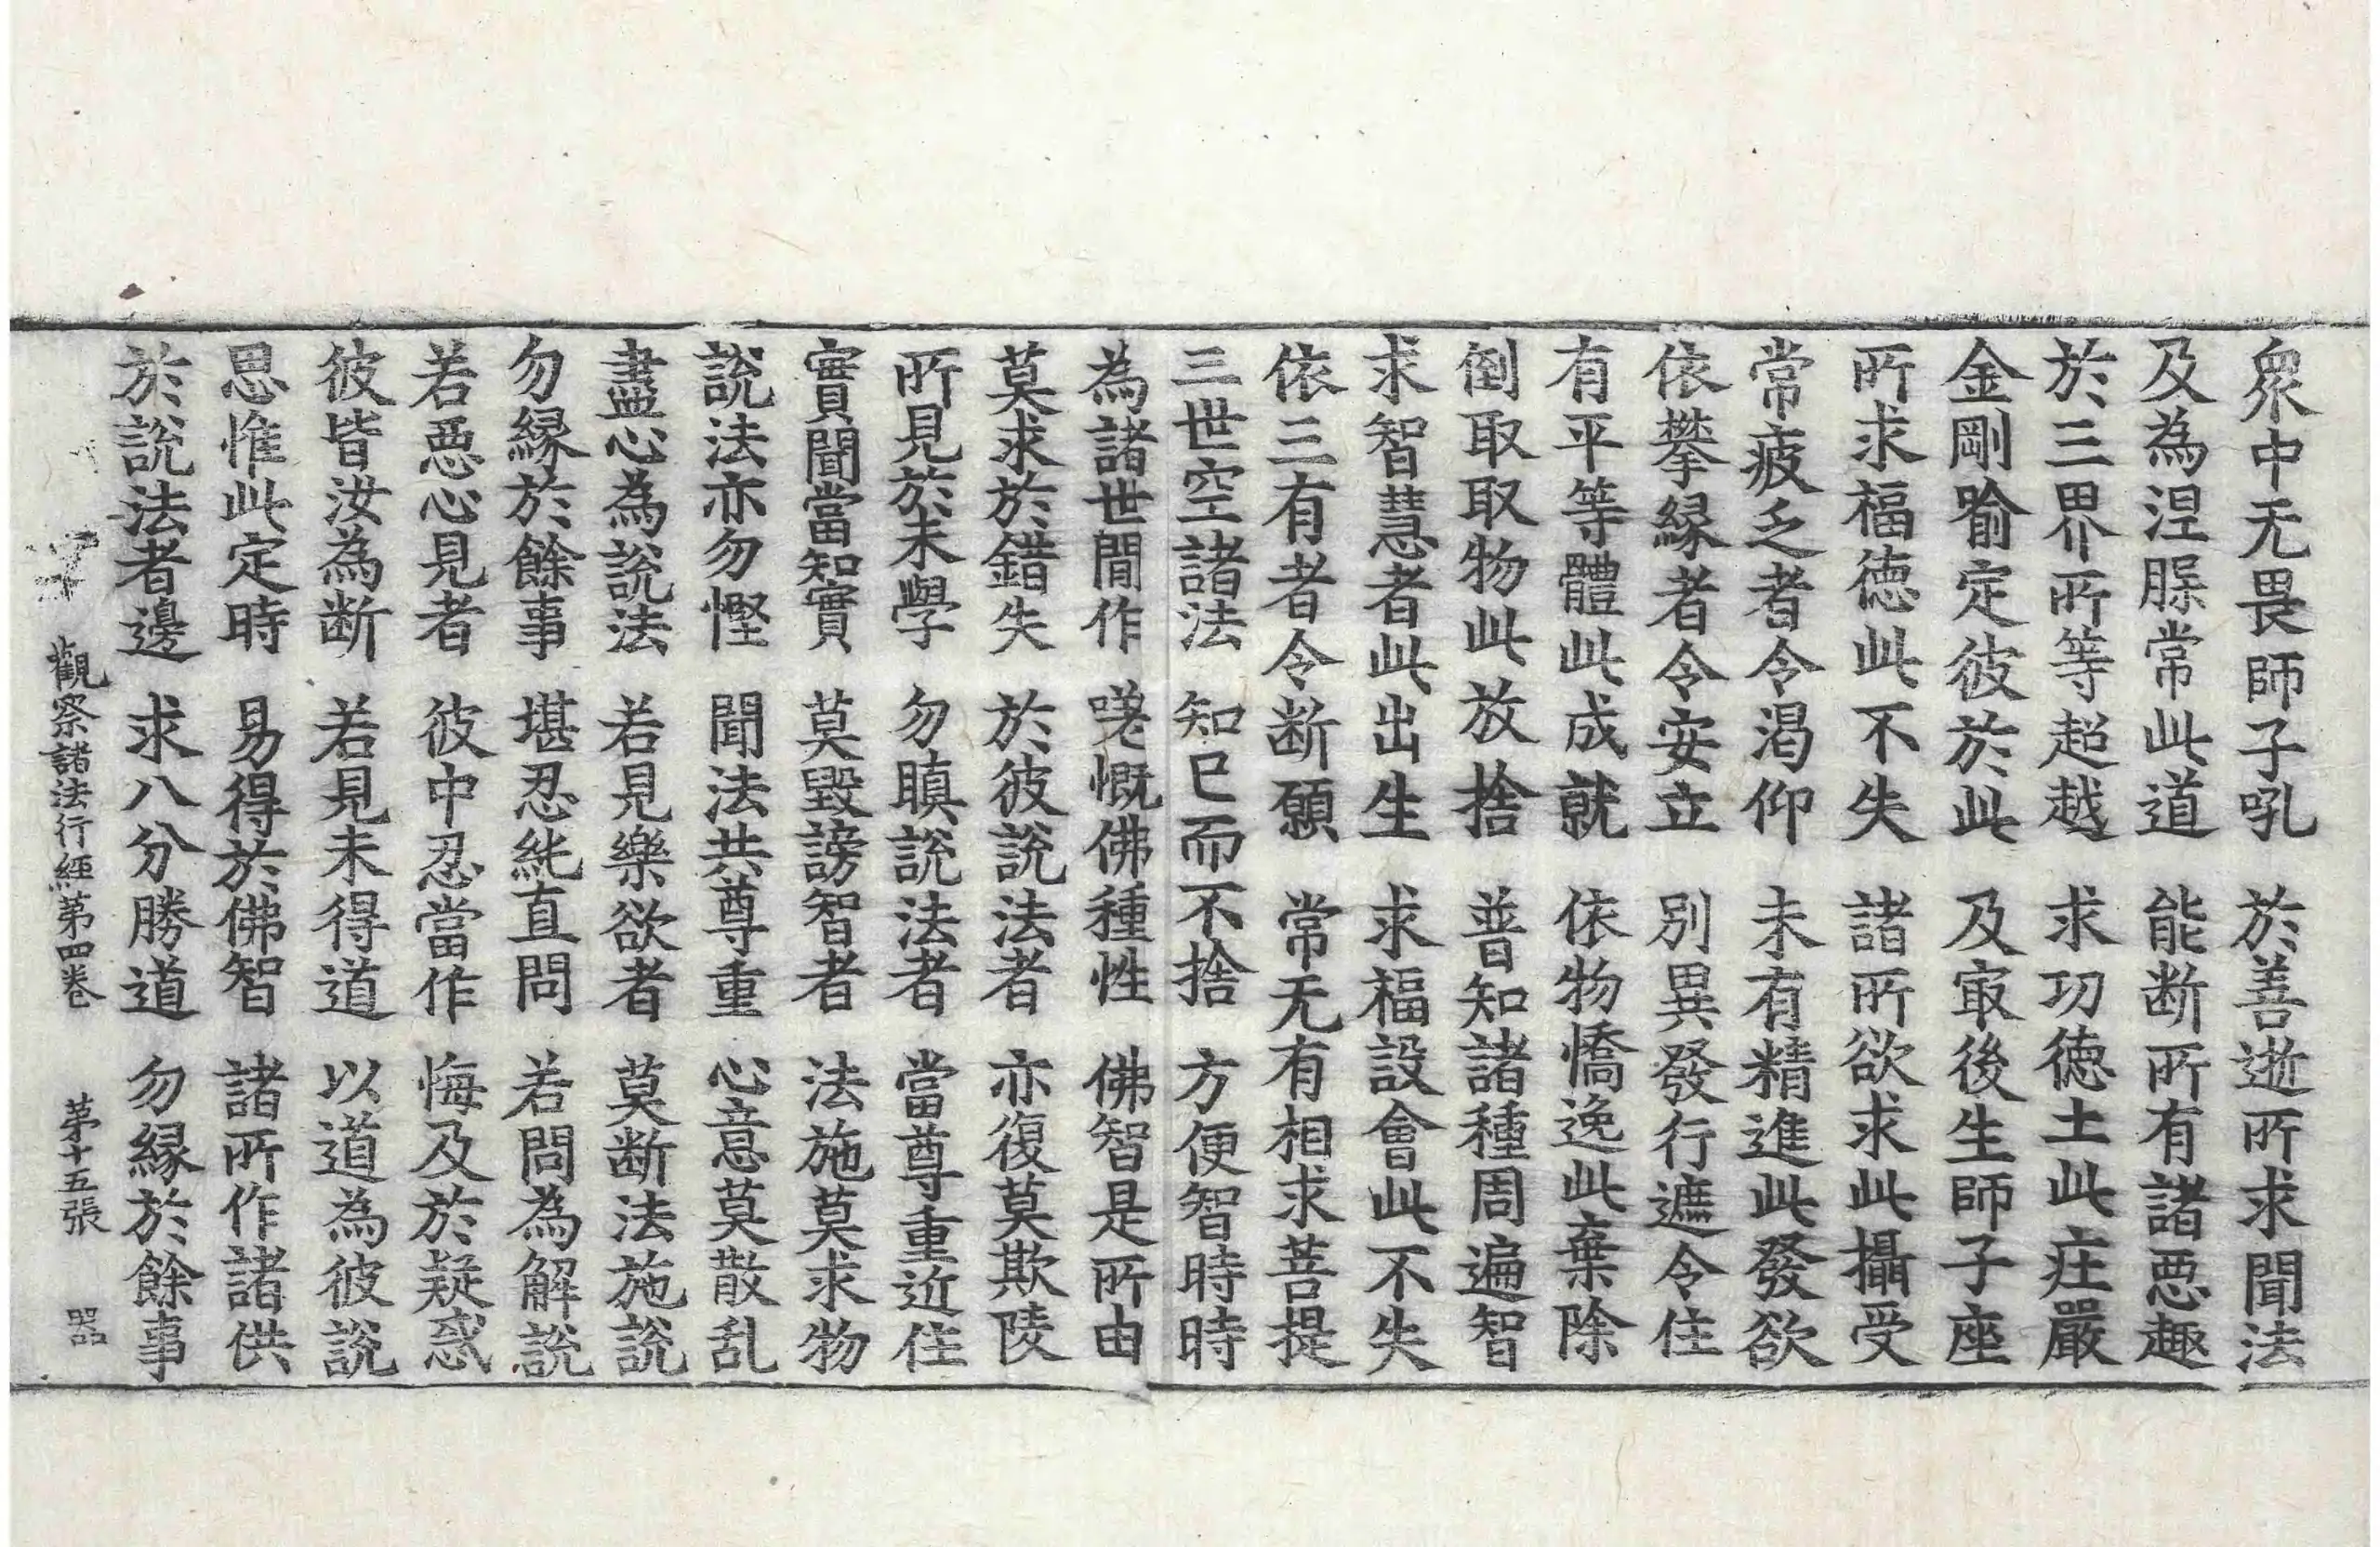 衆中无畏師子吼　於善逝所求聞法
及為涅脲常此道　能断所有諸惡趣
於三界所等超越　求功徳土此庄嚴
金剛喻定彼於此　及㝡後生師子座
所求福徳此不失　諸所欲求此攝受
常疲乏者令渴仰　未有精進此發欲
依攀縁者令安立　別異發行遮令住
有平等體此成就　依物憍逸此棄除
倒取取物此放捨　普知諸種周遍智
求智慧者此出生　求福設會此不失
依三有者令断願　常无有相求菩提
三世空諸法　知已而不捨　方便智時時
為諸世間作　嗟慨佛種性　佛智是所由
莫求於錯失　於彼說法者　亦復莫欺陵
所見於未學　勿瞋說法者　當尊重近住
實聞當知實　莫毀謗智者　法施莫求物
說法亦勿慳　聞法共尊重　心意莫散乱
盡心為說法　若見樂欲者　莫断法施說
勿縁於餘事　堪忍純直問　若問為解說
若惡心見者　彼中忍當作　悔及於疑惑
彼皆汝為断　若見未得道　以道為彼說
思惟此定時　易得於佛智　諸所作諸供
於說法者邊　求八分勝道　勿縁於餘事
觀察諸法行經第四卷　第十五張　器